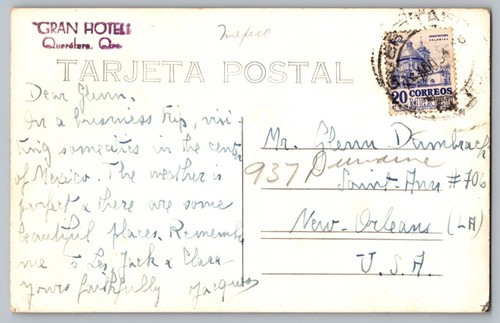 GRAN HOTEL
Querétaro, Qro
Mexico
TARJETA POSTAL
20 CORREOS
Dear Glenn.
In a business trip, visi-
ting some cities in the center
of Mexico. The weather is
perfect & there are some
beautiful places. Remember
me to Les, Jack & Clara
yours faithfully Jacques
Mr. Glenn Dumbrach
937 Dumaine
Saint-Ann # 706
New-Orleans (LA)
U.S.A.